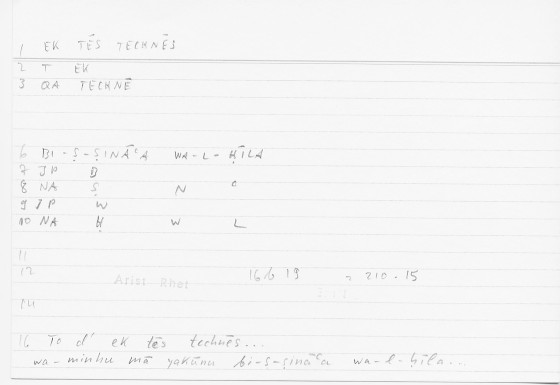 1 EK TĒS TECHNĒS
2 T EK
3 QA TECHNĒ
6 BI-Ṣ-ṢINĀʿA WA-L-ḤĪLA
7 JP B
8 NA Ṣ N ʿ
9 JP W
10 NA Ḥ W L
11
12 Arist Rhet 16/b 19 = 210.15
14
16 To d' ek tēs technēs...
wa-minhu mā yakūnu bi-ṣ-ṣināʿa wa-l-ḥīla...